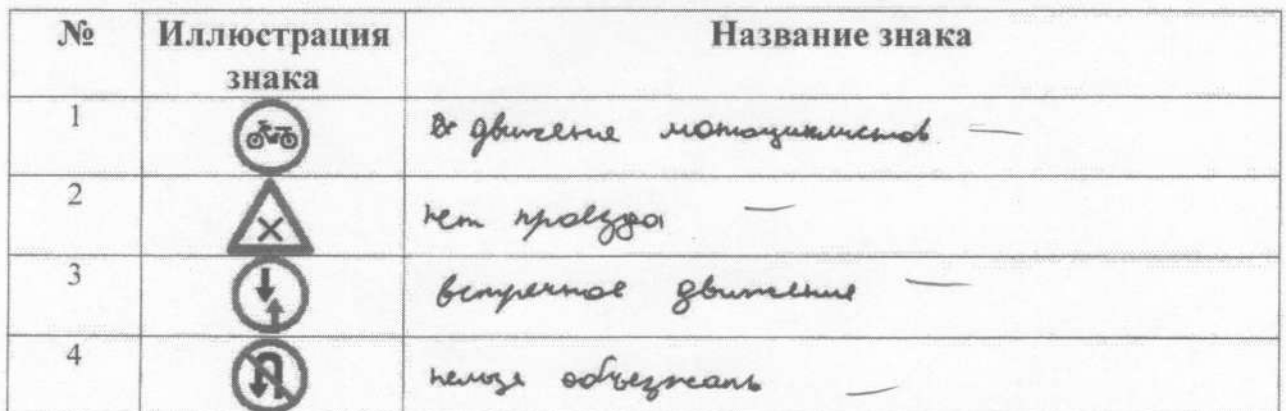 № Иллюстрация знака Название знака
1 движение мотоциклистов —
2 нет проезда —
3 встречное движение —
4 нельзя объезжать —